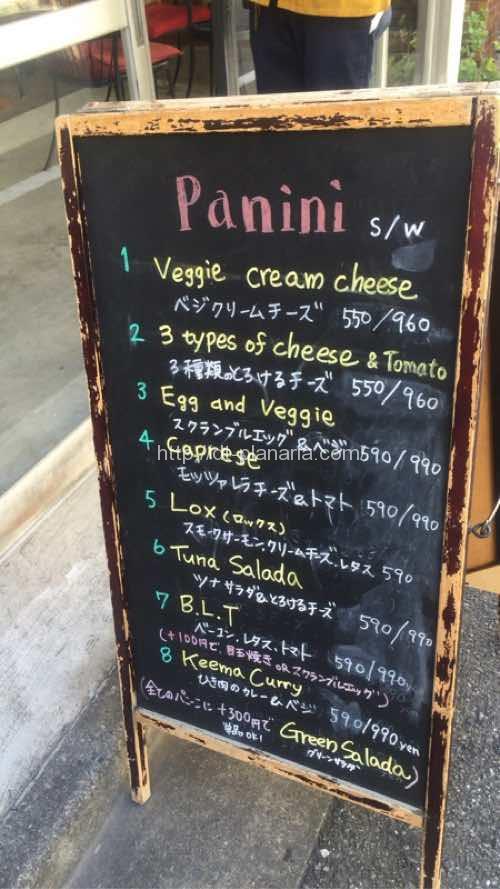 Panini S/W
1 Veggie cream cheese
ベジクリームチーズ 550/960
2 3 types of cheese & Tomato
3種類のとろけるチーズ 550/960
3 Egg and Veggie
スクランブルエッグ & ベジ 590/990
4 Caprese
http://dt-planaria.com
モッツァレラチーズ&トマト 590/990
5 Lox (ロックス)
スモークサーモン、クリームチーズ、レタス 590
6 Tuna Salada
ツナサラダ&とろけるチーズ
590/990
7 B.L.T
ベーコン、レタス、トマト 590/990
(+100円で、目玉焼き OR スクランブルエッグ)
8 Keema Curry
ひき肉のカレー&ベジ 590/990 yen
(全てのパニーニに +300円で Green Salada)
単品OK! グリーンサラダ